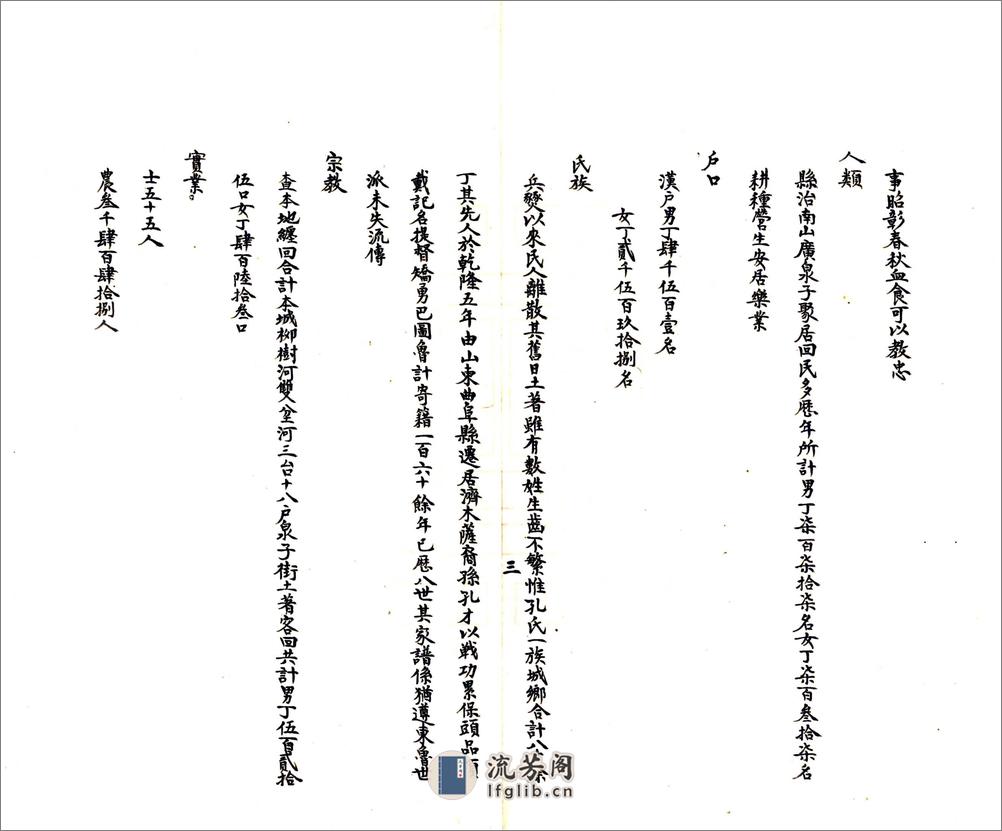 事昭彰春秋血食可以教忠
人類
縣治南山廣泉子聚居回民多歷年所計男丁柒百柒拾柒名女丁柒百叁拾柒名
耕種營生安居樂業
戶口
漢戶男丁肆千伍百壹名
女丁貳千伍百玖拾捌名
氏族
兵燹以來民人離散其舊日土著雖有數姓生齒不繁惟孔氏一族城鄉合計八
丁其先人於乾隆五年由山東曲阜縣遷居濟木薩裔孫孔才以戰功累保頭品
戴記名提督矯勇巴圖魯計寄籍一百六十餘年已歷八世其家譜係猶遵東魯世
派未失流傳
宗教
查本地纏回合計本城柳樹河雙岔河三台十八戶泉子街土著客回共計男丁伍百貳拾
伍口女丁肆百陸拾叁口
實業。
士五十五人
農叁千肆百肆拾捌人
三
流芳阁
lfglib.cn